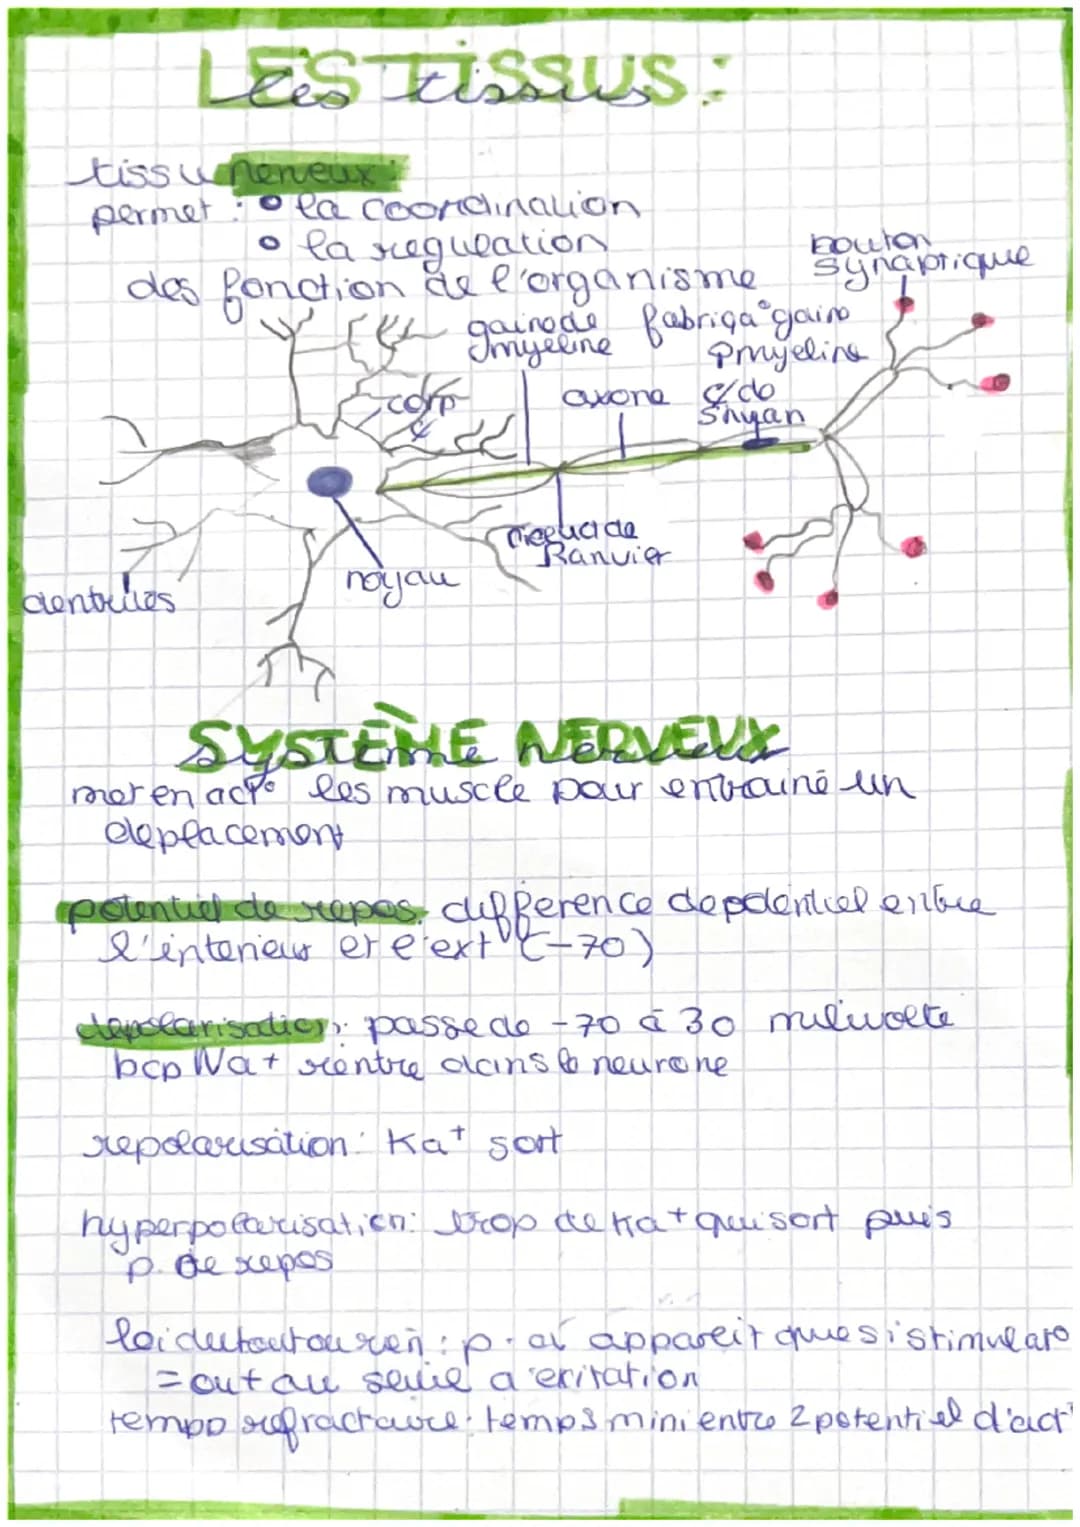 LES TISSUS :
les tissus
tissu nerveux :
permet : • la coordination
• la regulation
des fonction de l'organisme
bouton
synaptique
gaine de
myeline
fabriqa° gaine
myeline
corp
axone
c/ do
Shyan
de
Ranvier
noyau
dentrites
SYSTÈME NERVEUX
système nerveux
met en act° les muscle pour entrainé un
deplacement
potentiel de repos: difference de potentiel entre
l'interieur et l'ext (-70)
depolarisation: passe de -70 à 30 milivolte
bcp Na+ rentre dans le neurone
repolarisation: Ka+ sort
hyperpolarisation: trop de Ka+ qui sort puis
p. de repos
loi du tout ou rien : p. a apparait que si stimulat°
= out au seuil d'exitation
temps refractaire: temps mini entre 2 potentiel d'act°